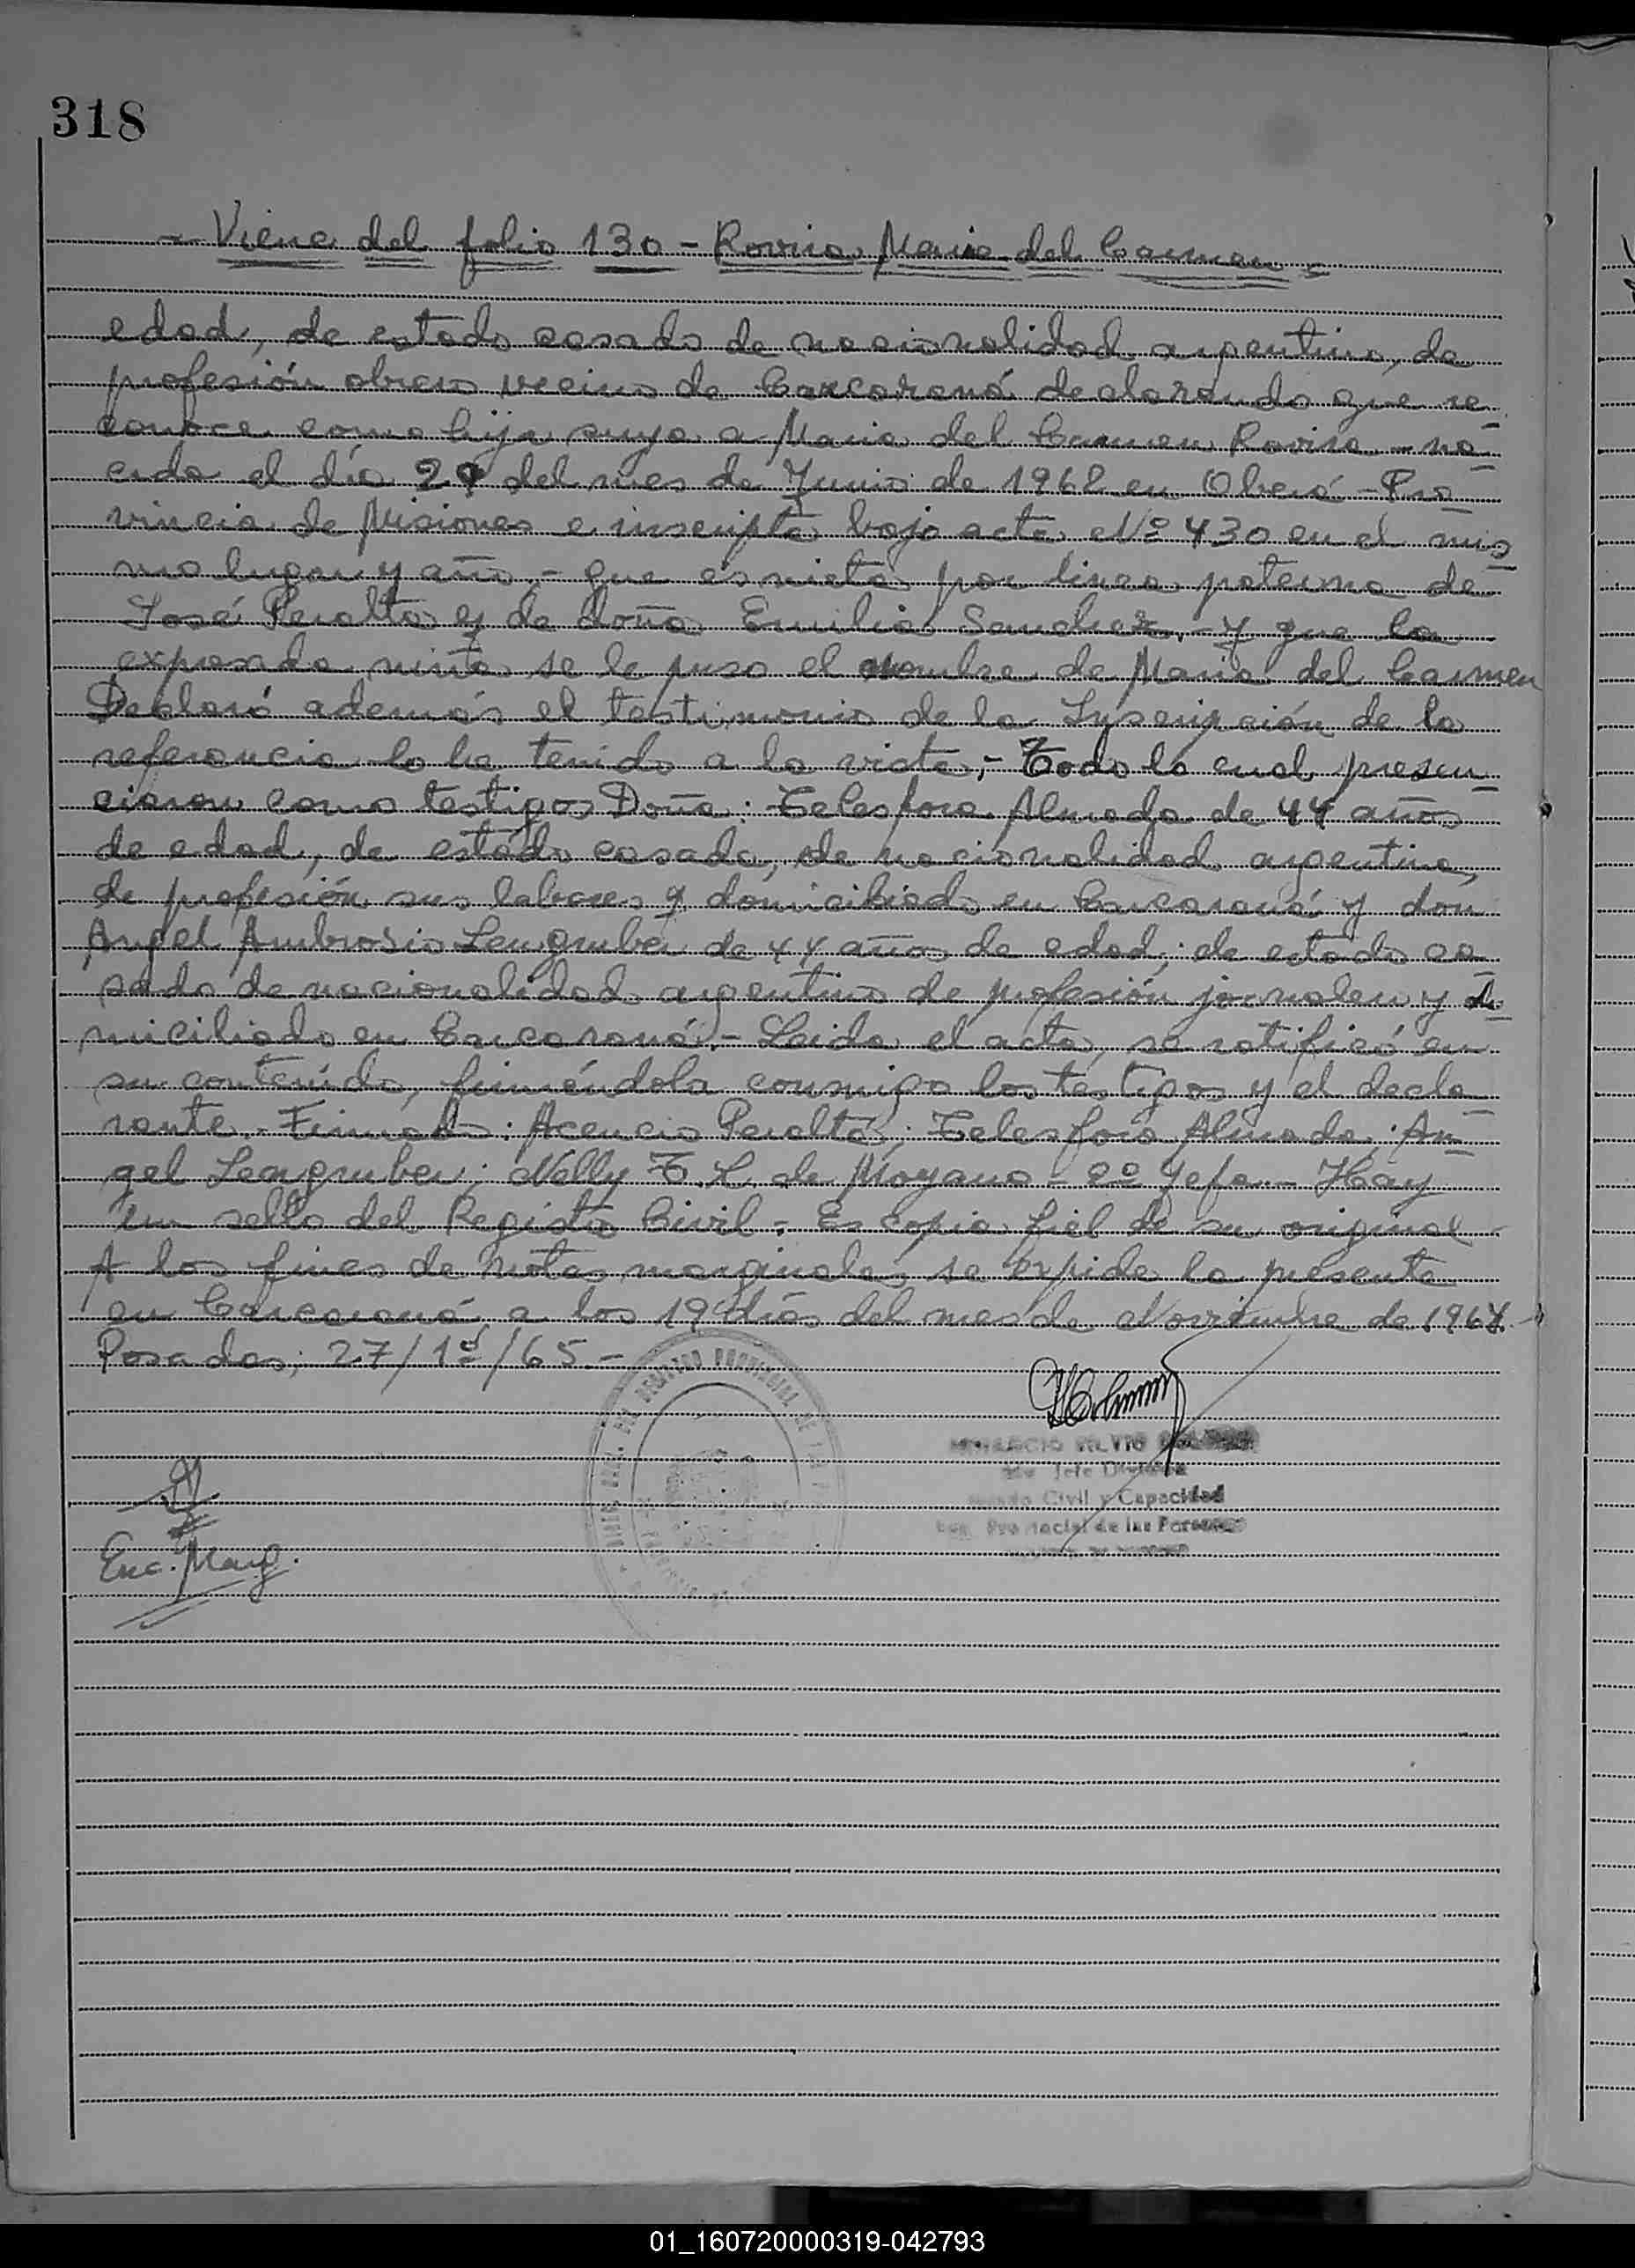 318
- Viene del folio 130 - Rovira Maria del Carmen -
edad, de estado casado de nacionalidad argentino, de
profesión obrero vecino de Carcarañá declarando que re
conoce como hija suya a Maria del Carmen Rovira - na
cida el día 29 del mes de Junio de 1962 en Oberá - Pro
vincia de Misiones e inscripta bajo acta Nº 430 en el mis
mo lugar y año.- que es nieta por linea paterna de
José Peralta y de doña Emilia Sanchez.- y que la
expresada niña se le puso el nombre de Maria del Carmen
Declaró además el testimonio de la Inscripción de la
referencia lo ha tenido a la vista.- Todo lo cual presen
ciaron como testigos Doña: Telesfora Almada de 44 años
de edad, de estado casada, de nacionalidad argentina,
de profesión sus labores y domiciliada en Carcarañá y don
Angel Ambrosio Lengruber de 44 años de edad; de estado ca
sado de nacionalidad argentino de profesión jornalero y do
miciliado en Carcarañá.- Leida el acta, se ratificó en
su contenido, firmándola conmigo los testigos y el decla
rante.- Firmado: Acencio Peralta; Telesfora Almada; An
gel Lengruber; Nelly T. L. de Moyano - 2º Jefa.- Hay
un sello del Registro Civil.- Es copia fiel de su original
A los fines de notas marginales se expide la presente
en Carcarañá a los 19 días del mes de Noviembre de 1964.-
Posadas, 27/1º/65.-
Jefe División
Civil y Capacidad
Provincial de las Personas
Enc. Marg.
01_160720000319-042793